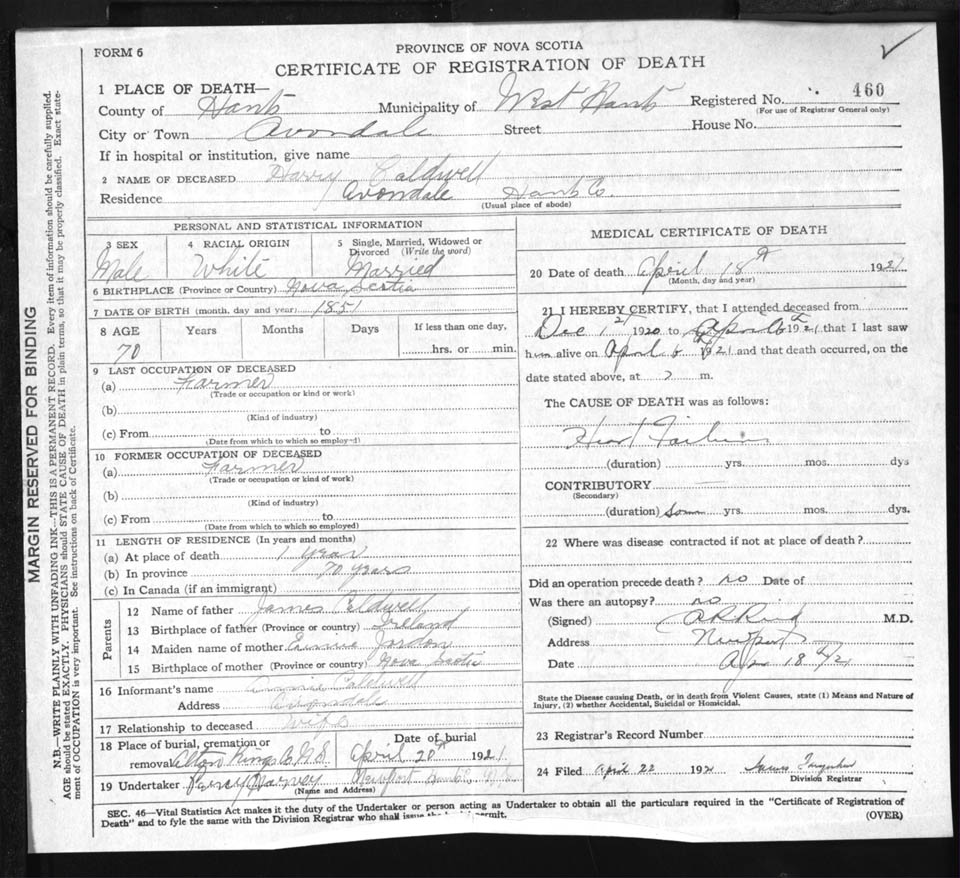 FORM 6
PROVINCE OF NOVA SCOTIA
CERTIFICATE OF REGISTRATION OF DEATH
1 PLACE OF DEATH—
County of Hants Municipality of West Hants Registered No. 460
(For use of Registrar General only)
City or Town Avondale Street House No.
If in hospital or institution, give name
2 NAME OF DECEASED Harry Caldwell
Residence Avondale Hants Co.
(Usual place of abode)
PERSONAL AND STATISTICAL INFORMATION
3 SEX 4 RACIAL ORIGIN 5 Single, Married, Widowed or Divorced (Write the word)
Male White Married
6 BIRTHPLACE (Province or Country) Nova Scotia
7 DATE OF BIRTH (month, day and year) 1851
8 AGE Years Months Days If less than one day,
70 hrs. or min.
9 LAST OCCUPATION OF DECEASED
(a) Farmer
(Trade or occupation or kind or work)
(b)
(Kind of industry)
(c) From to
(Date from which to which so employed)
10 FORMER OCCUPATION OF DECEASED
(a) Farmer
(Trade or occupation or kind of work)
(b)
(Kind of industry)
(c) From to
(Date from which to which so employed)
11 LENGTH OF RESIDENCE (In years and months)
(a) At place of death 1 year
(b) In province 70 years
(c) In Canada (if an immigrant)
Parents
12 Name of father James Caldwell
13 Birthplace of father (Province or country) Ireland
14 Maiden name of mother Jordon
15 Birthplace of mother (Province or country) Nova Scotia
16 Informant's name Caldwell
Address Avondale
17 Relationship to deceased Wife
18 Place of burial, cremation or removal Kings Co N.S. Date of burial April 20th 1921
19 Undertaker Percy Harvey Newport Hants Co.
(Name and Address)
MEDICAL CERTIFICATE OF DEATH
20 Date of death April 18th 1921
(Month, day and year)
21 I HEREBY CERTIFY, that I attended deceased from
Dec 1st 1920 to April 6th 1921 that I last saw
him alive on April 6th 1921 and that death occurred, on the
date stated above, at ? m.
The CAUSE OF DEATH was as follows:
Heart Failure
(duration) yrs. mos. dys
CONTRIBUTORY
(Secondary)
(duration) Some yrs. mos. dys.
22 Where was disease contracted if not at place of death?
Did an operation precede death? no Date of
Was there an autopsy? no
(Signed) M.D.
Address Newport
Date Ap 18th/21
State the Disease causing Death, or in death from Violent Causes, state (1) Means and Nature of
Injury, (2) whether Accidental, Suicidal or Homicidal.
23 Registrar's Record Number
24 Filed April 22 192 James
Division Registrar
SEC. 46—Vital Statistics Act makes it the duty of the Undertaker or person acting as Undertaker to obtain all the particulars required in the "Certificate of Registration of
Death" and to fyle the same with the Division Registrar who shall issue permit.
(OVER)
MARGIN RESERVED FOR BINDING
N.B.—WRITE PLAINLY WITH UNFADING INK—THIS IS A PERMANENT RECORD. Every item of information should be carefully supplied.
AGE should be stated EXACTLY. PHYSICIANS should STATE CAUSE OF DEATH in plain terms, so that it may be properly classified. Exact state-
ment of OCCUPATION is very important. See instructions on back of Certificate.